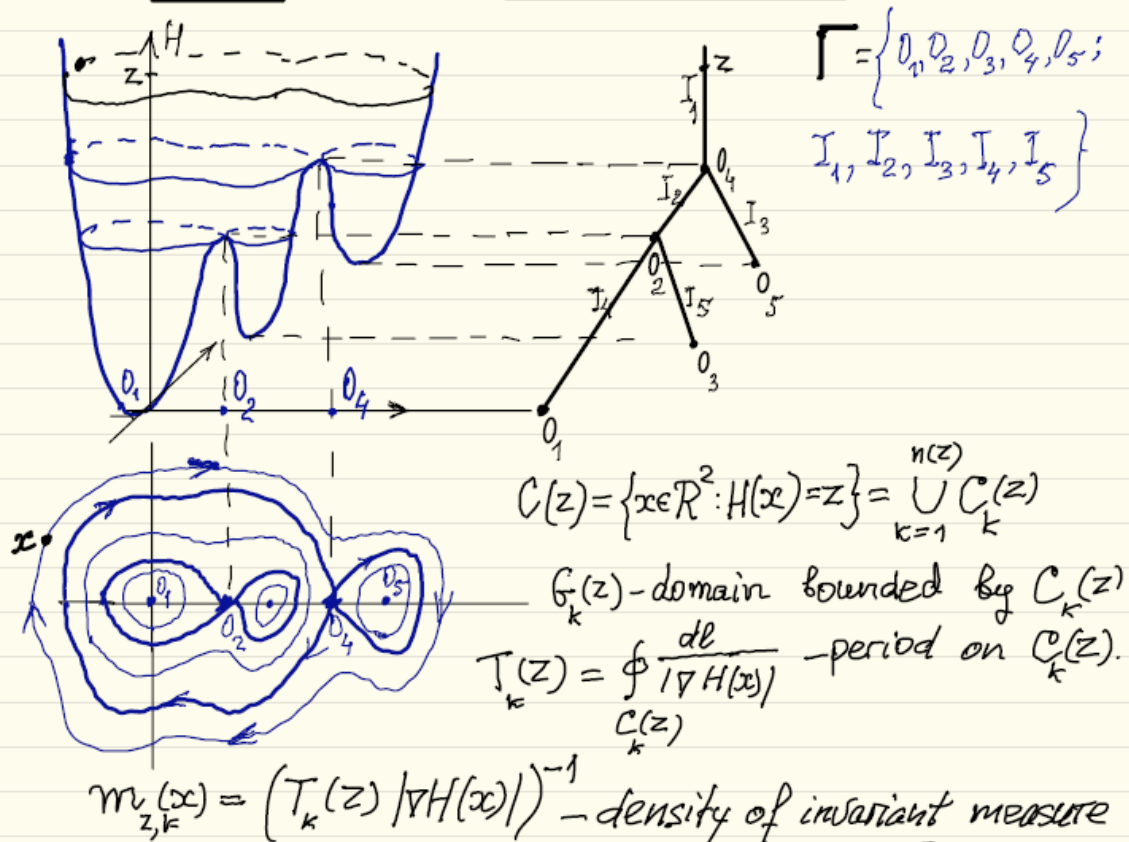 H
z
O₁
O₂
O₄
z
I₁
O₄
I₂
I₃
O₂
O₅
I₄
I₅
O₃
O₁
Γ = {O₁, O₂, O₃, O₄, O₅;
I₁, I₂, I₃, I₄, I₅}
x
O₁
O₂
O₄
O₅
C(z) = {x∈R²: H(x)=z} = ∪_{k=1}^{n(z)} C_k(z)
G_k(z) - domain bounded by C_k(z)
T_k(z) = ∮_{C_k(z)} dl / |∇H(x)| - period on C_k(z).
m_{z,k}(x) = (T_k(z) |∇H(x)|)⁻¹ - density of invariant measure